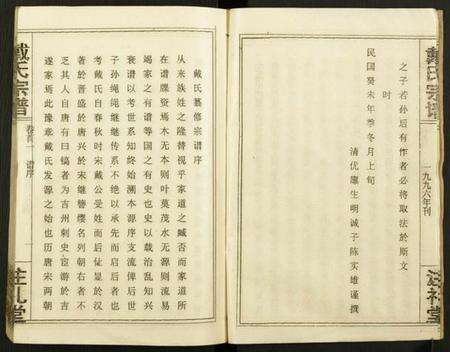 戴氏宗谱
一九九六年刊
注礼堂
之子若孙后有作者必将取法於斯文
时
民国癸未年季冬月上旬
清优廪生明诚子陈实雄谨撰
戴氏纂修宗谱序
从来族姓之隆替视乎家道之臧否而家道所
在谱牒资焉木无本则叶莫茂水无源则流易
竭家之有谱等国之有史也史以载治乱知兴
衰谱以考世系知终始溯本源序支流俾后世
子孙绳绳继继传系不绝以承先而启后者也
考戴氏自春秋时宋戴公受姓而后征显於汉
著於晋盛於唐兴於宋继簪缨名列朝右者不
乏其人自唐有曰镐者为吉州刺史宦游於吉
遂家焉此豫章戴氏发源之始也历唐宋两朝
戴氏宗谱
卷首
谱序
注礼堂